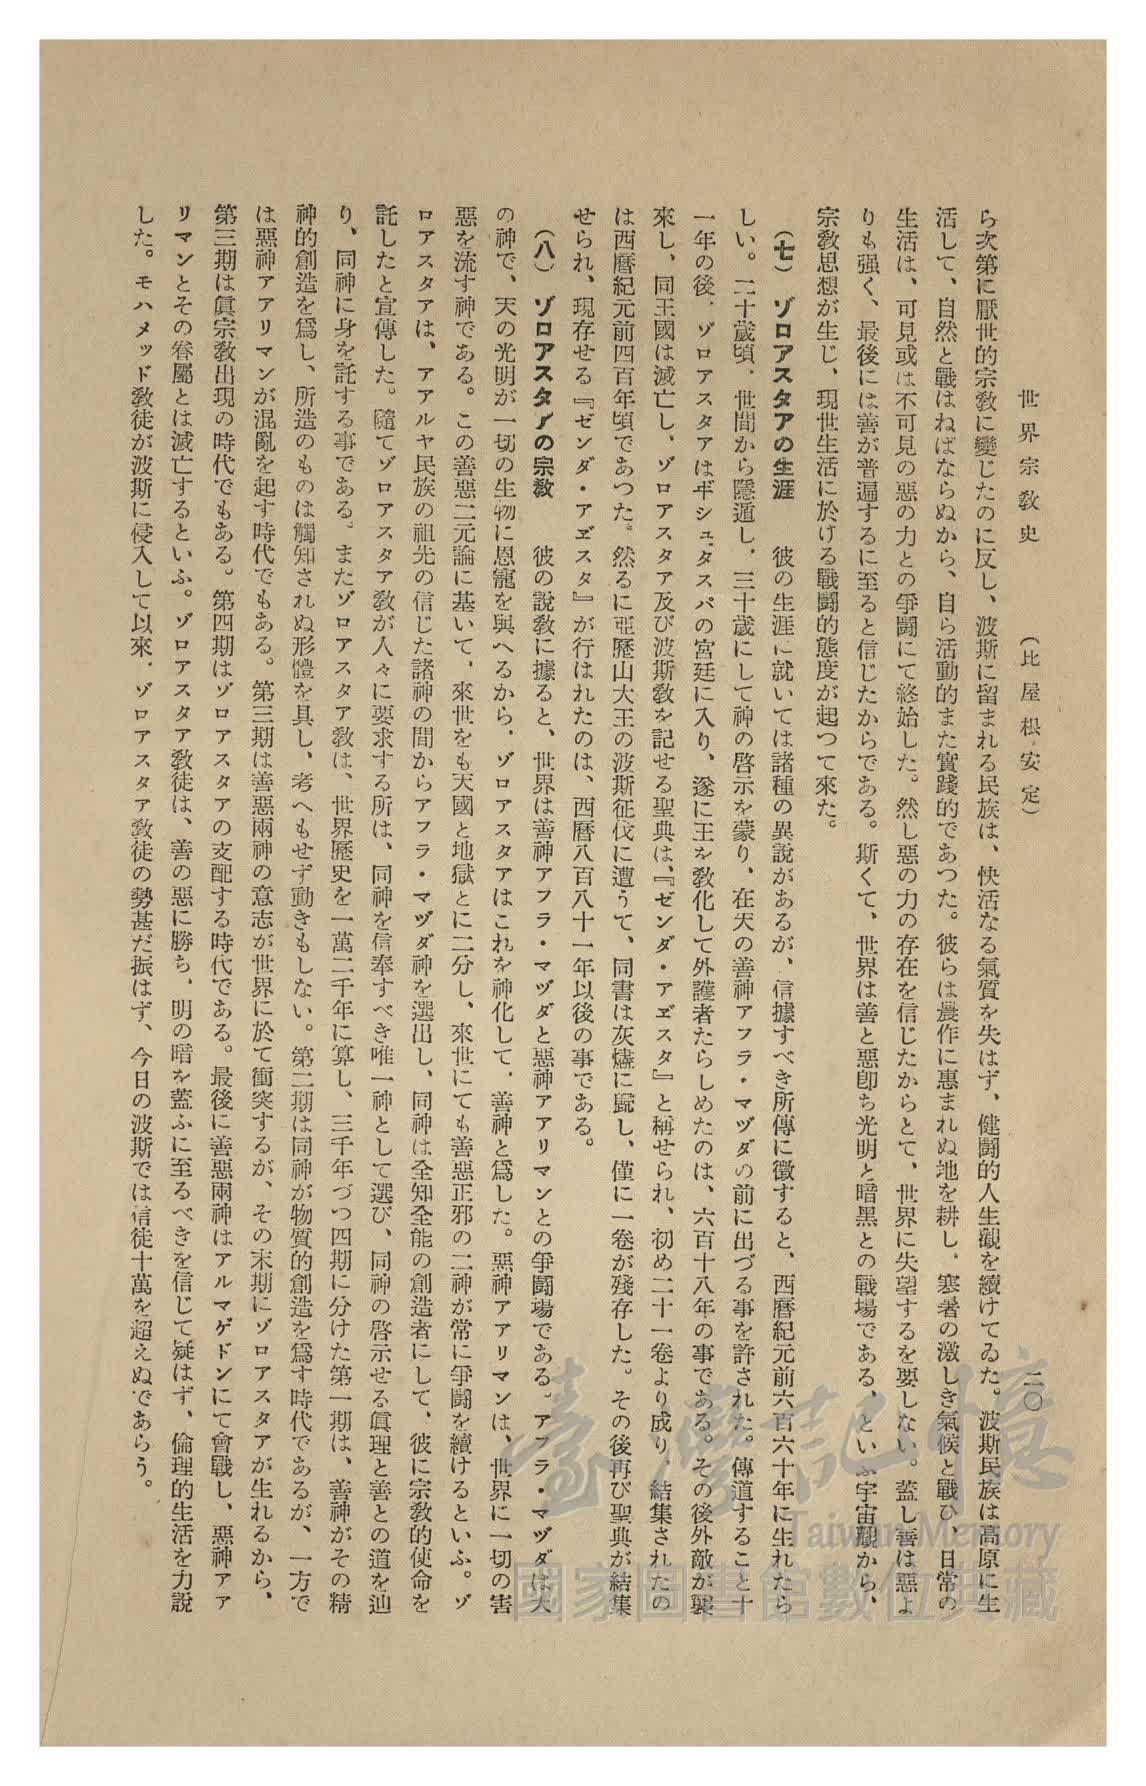 世界宗教史　（比屋根安定）　二〇
ら次第に厭世的宗教に變じたのに反し、波斯に留まれる民族は、快活なる氣質を失はず、健鬪的人生觀を續けてゐた。波斯民族は高原に生
活して、自然と戰はねばならぬから、自ら活動的また實踐的であつた。彼らは農作に惠まれぬ地を耕し、寒暑の激しき氣候と戰ひ、日常の
生活は、可見或は不可見の惡の力との爭鬪にて終始した。然し惡の力の存在を信じたからとて、世界に失望するを要しない。蓋し善は惡よ
りも强く、最後には善が普遍するに至ると信じたからである。斯くて、世界は善と惡卽ち光明と暗黑との戰場である、といふ宇宙觀から、
宗教思想が生じ、現世生活に於ける戰鬪的態度が起つて來た。
（七）　ゾロアスタアの生涯　彼の生涯に就いては諸種の異說があるが、信據すべき所傳に徵すると、西曆紀元前六百六十年に生れたら
しい。二十歲頃、世間から隱遁し、三十歲にして神の啓示を蒙り、在天の善神アフラ・マヅダの前に出づる事を許された。傳道すること十
一年の後、ゾロアスタアはギシュタスパの宮廷に入り、遂に王を教化して外護者たらしめたのは、六百十八年の事である。その後外敵が襲
來し、同王國は滅亡し、ゾロアスタア及び波斯教を記せる聖典は、『ゼンダ・アヹスタ』と稱せられ、初め二十一卷より成り、結集されたの
は西曆紀元前四百年頃であつた。然るに亞歷山大王の波斯征伐に遭うて、同書は灰燼に歸し、僅に一卷が殘存した。その後再び聖典が結集
せられ、現存せる『ゼンダ・アヹスタ』が行はれたのは、西曆八百八十一年以後の事である。
（八）　ゾロアスタアの宗教　彼の說教に據ると、世界は善神アフラ・マヅダと惡神アアリマンとの爭鬪場である。アフラ・マヅダは天
の神で、天の光明が一切の生物に恩寵を與へるから、ゾロアスタアはこれを神化して、善神と爲した。惡神アアリマンは、世界に一切の害
惡を流す神である。この善惡二元論に基いて、來世をも天國と地獄とに二分し、來世にても善惡正邪の二神が常に爭鬪を續けるといふ。ゾ
ロアスタアは、アアルヤ民族の祖先の信じた諸神の間からアフラ・マヅダ神を選出し、同神は全知全能の創造者にして、彼に宗教的使命を
託したと宣傳した。隨てゾロアスタア教が人々に要求する所は、同神を信奉すべき唯一神として選び、同神の啓示せる眞理と善との道を辿
り、同神に身を託する事である。またゾロアスタア教は、世界歷史を一萬二千年に算し、三千年づつ四期に分けた第一期は、善神がその精
神的創造を爲し、所造のものは觸知されぬ形體を具し、考へもせず動きもしない。第二期は同神が物質的創造を爲す時代であるが、一方で
は惡神アアリマンが混亂を起す時代でもある。第三期は善惡兩神の意志が世界に於て衝突するが、その末期にゾロアスタアが生れるから、
第三期は眞宗教出現の時代でもある。第四期はゾロアスタアの支配する時代である。最後に善惡兩神はアルマゲドンにて會戰し、惡神アア
リマンとその眷屬とは滅亡するといふ。ゾロアスタア教徒は、善の惡に勝ち、明の暗を蓋ふに至るべきを信じて疑はず、倫理的生活を力說
した。モハメッド教徒が波斯に侵入して以來、ゾロアスタア教徒の勢甚だ振はず、今日の波斯では信徒十萬を超えぬであらう。
臺灣記憶
Taiwan Memory
國家圖書館數位典藏